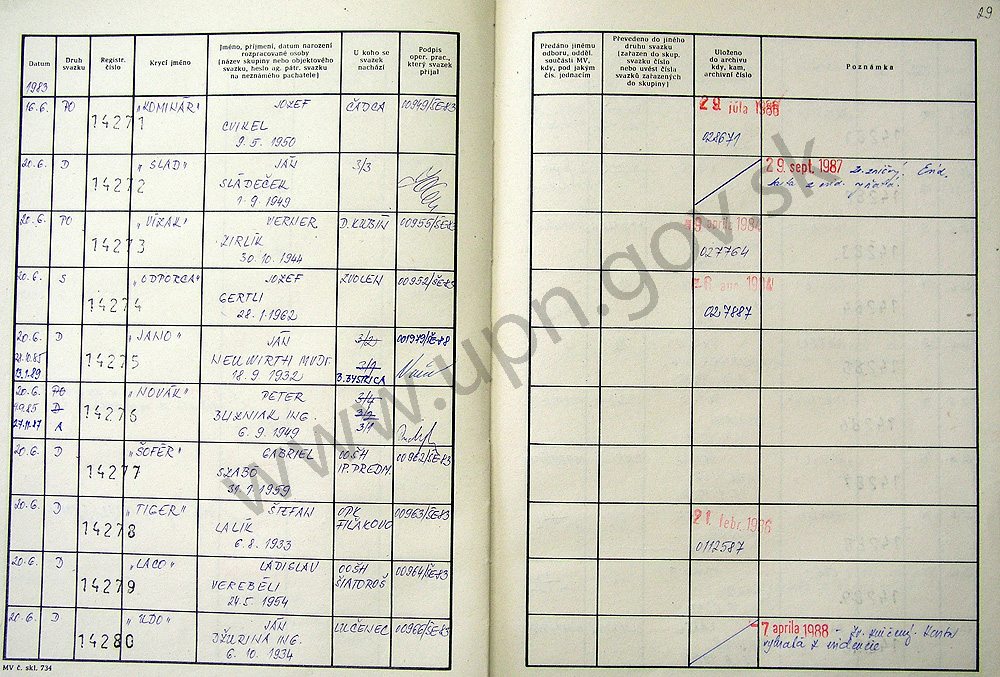 29
Datum
Druh svazku
Registr. číslo
Krycí jméno
Jméno, příjmení, datum narození
rozpracované osoby
(název skupiny nebo objektového
svazku, heslo ag. pátr. svazku
na neznámého pachatele)
U koho se
svazek
nachází
Podpis
oper. prac.,
který svazek
přijal
Předáno jinému
odboru, odděl.
součásti MV,
kdy, pod jakým
čís. jednacím
Převedeno do jiného
druhu svazku
(zařazen do skup.
svazku číslo
nebo uvést čísla
svazků zařazených
do skupiny)
Uloženo
do archivu
kdy, kam,
archivní číslo
Poznámka
1983
16.6. PO 14271 „KOMINÁR" JOZEF ČADCA 00949/ŠE-83
CVIKEL
9. 5. 1950
29. júla 1986
028671
20.6. D 14272 „SLAD" JÁN 3/3
SLÁDEČEK
1. 9. 1949
29. sept. 1987
20.6. PO 14273 „VÍZAK" VERNER D. KUBÍN 00955/ŠE-83
ZIRLÍK
30. 10. 1944
027764
20.6. S 14274 „ODPORCA" JOZEF ZVOLEN 00952/ŠE-83
GERTLI
28. 1. 1962
027887
20.6. D 14275 „JANO" JÁN 3/2
NEUWIRTH MVDr.
18. 9. 1932
B. BYSTRICA
13.1.89
20.6. PO 14276 „NOVÁK" PETER 3/4
D 3/2
27.11.87 A 3/1
BUZNIAK ING.
6. 9. 1949
20.6. D 14277 „ŠOFÉR" GABRIEL OOŠH 00962/ŠE-83
SZABO IP. PREDM.
31. 1. 1959
20.6. D 14278 „TIGER" ŠTEFAN OPK 00963/ŠE-83
LALÍK FIĽAKOVO
6. 8. 1933
21. febr. 1986
0112587
20.6. D 14279 „LACO" LADISLAV OOŠH 00964/ŠE-83
VEREBÉLI ŠIATOROŠ
24. 5. 1954
20.6. D 14280 „UDO" JÁN LUČENEC 00966/ŠE-83
DŽURINA ING.
6. 10. 1934
7 apríla 1988 - zv. zničený. Karta
vybratá z evidencie
MV č. skl. 734
www.upn.gov.sk